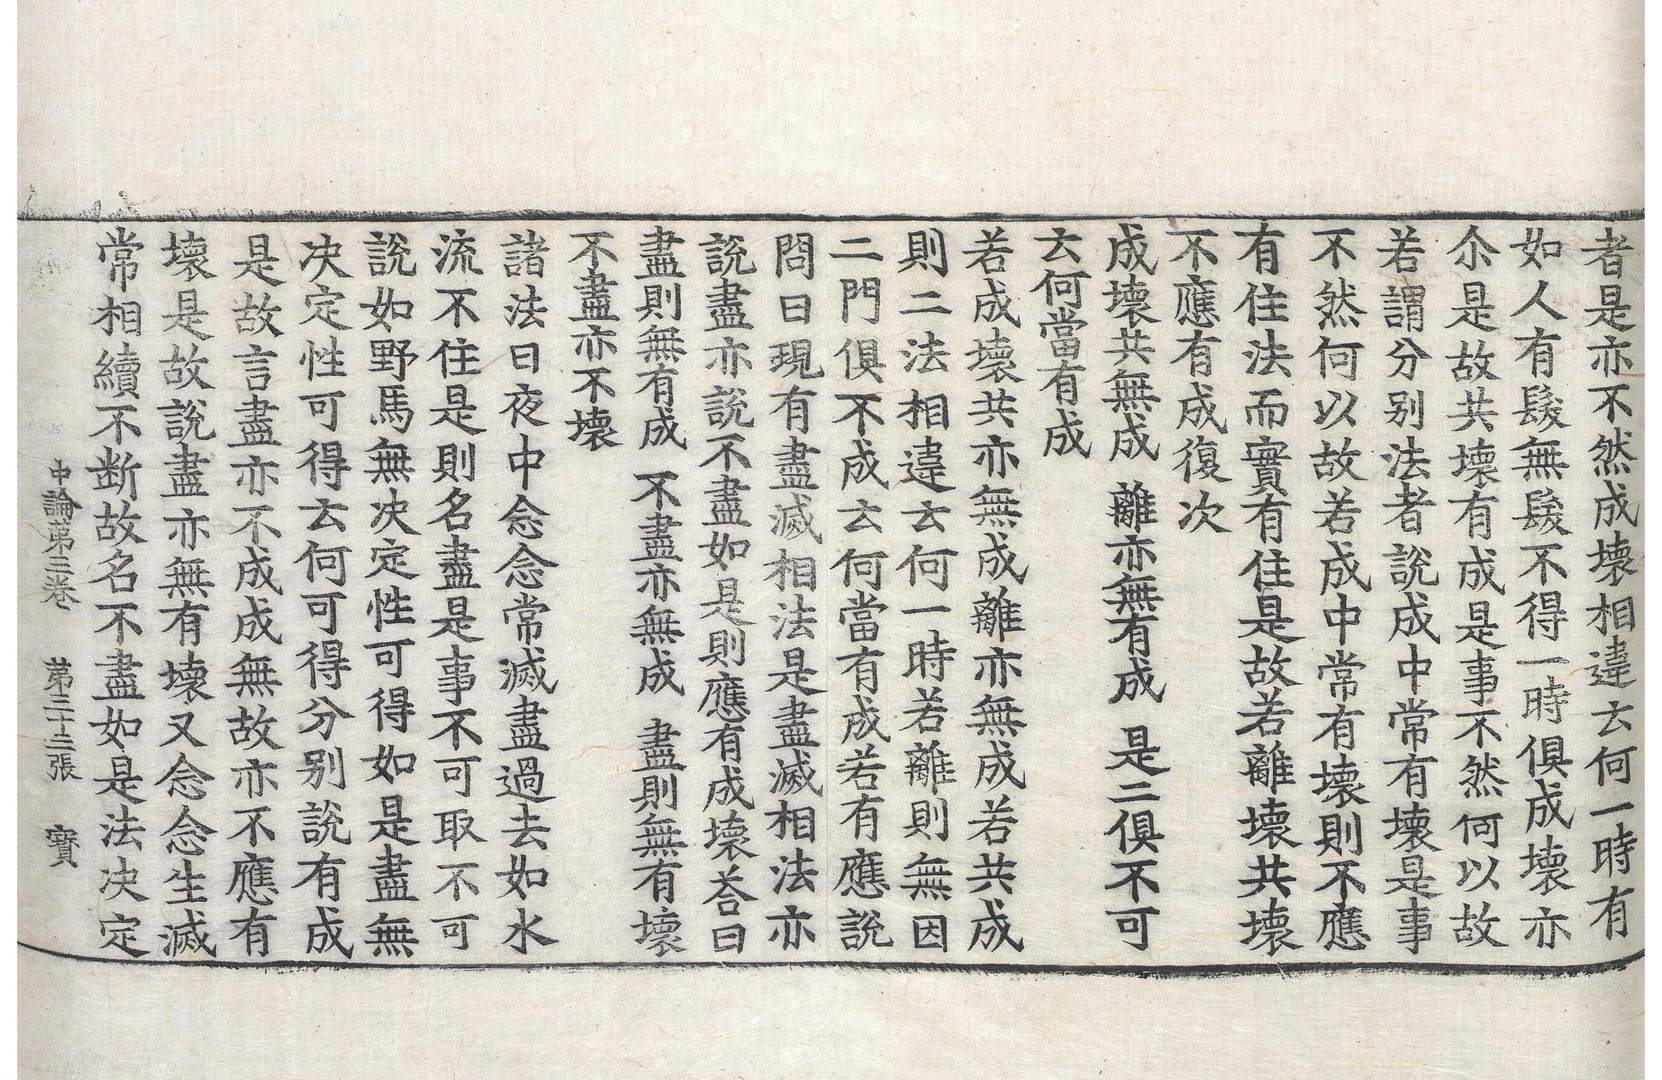 者是亦不然成壞相違云何一時有
如人有髮無髮不得一時俱成壞亦
尒是故共壞有成是事不然何以故
若謂分別法者說成中常有壞是事
不然何以故若成中常有壞則不應
有住法而實有住是故若離壞共壞
不應有成復次
成壞共無成 離亦無有成 是二俱不可
云何當有成
若成壞共亦無成離亦無成若共成
則二法相違云何一時若離則無因
二門俱不成云何當有成若有應說
問曰現有盡滅相法是盡滅相法亦
說盡亦說不盡如是則應有成壞荅曰
盡則無有成 不盡亦無成 盡則無有壞
不盡亦不壞
諸法日夜中念念常滅盡過去如水
流不住是則名盡是事不可取不可
說如野馬無决定性可得如是盡無
决定性可得云何可得分别說有成
是故言盡亦不成成無故亦不應有
壞是故說盡亦無有壞又念念生滅
常相續不断故名不盡如是法决定
中論第三卷 第二十三張 寳